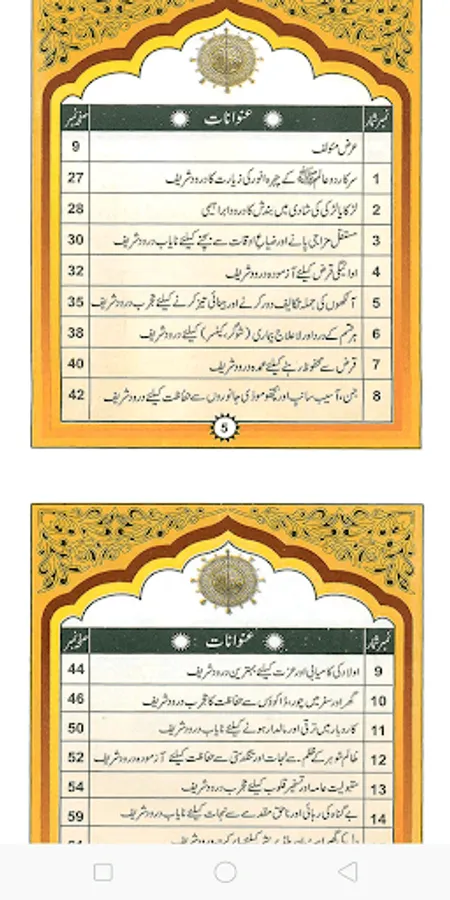 نمبر شمار عنوانات صفحہ نمبر
عرض مئولف 9
1 سرکار دو عالم ﷺ کے چہرہ انور کی زیارت کا درود شریف 27
2 لڑکا یا لڑکی کی شادی میں بندش کا درود ابراہیمی 28
3 مستقل مزاجی پانے اور ضیاع اوقات سے بچنے کیلئے نایاب درود شریف 30
4 ادائیگی قرض کیلئے آزمودہ درود شریف 32
5 آنکھوں کی جملہ تکالیف دور کرنے اور بینائی تیز کرنے کیلئے مجرب درود شریف 35
6 ہر قسم کے درد اور لاعلاج بیماری (شوگر، کینسر) کیلئے درود شریف 38
7 قرض سے محفوظ رہنے کیلئے عمدہ درود شریف 40
8 جن، آسیب سانپ اور بچھو موذی جانوروں سے حفاظت کیلئے درود شریف 42
5
نمبر شمار عنوانات صفحہ نمبر
9 اولاد کی کامیابی اور عزت کیلئے بہترین درود شریف 44
10 گھر اور سفر میں چور، ڈاکوؤں سے حفاظت کا مجرب درود شریف 46
11 کاروبار میں ترقی اور مالدار ہونے کیلئے نایاب درود شریف 50
12 ظالم شوہر کے ظلم سے نجات اور تنگدستی سے حفاظت کیلئے آزمودہ درود شریف 52
13 مقبولیت عامہ اور تسخیر قلوب کیلئے مجرب درود شریف 54
14 بے گناہ کی رہائی اور ناحق مقدمے سے نجات کیلئے نایاب درود شریف 59